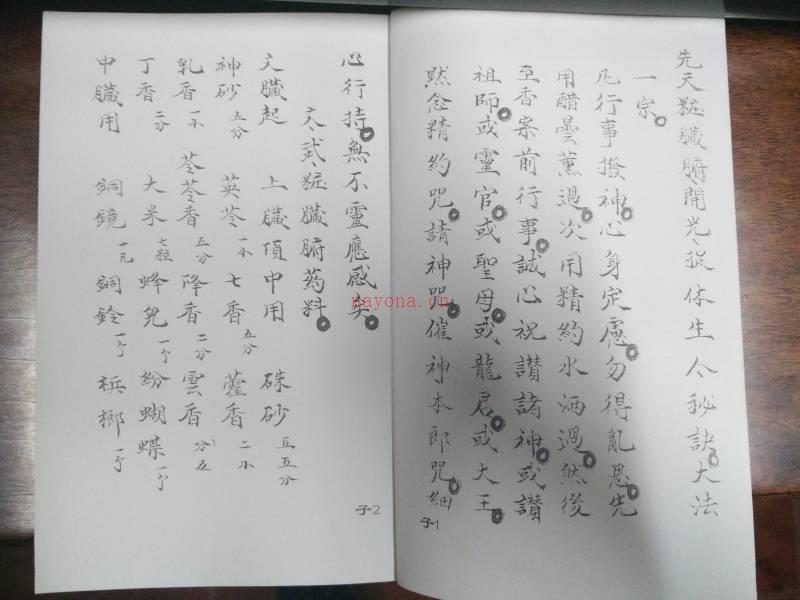 先天粧臟腑開光捉体生人秘訣大法
一宗
凡行事撥神心身定慮勿得亂思先
用醋曇薰過次用精約水洒過然後
至香案前行事誠心祝讚諸神或讚
祖師或靈官或聖母或龍君或大王
黙念精約咒請神咒催神木郎咒細
子1
心行持無不靈應感矣
文武粧臟腑葯料
文臟起 上臟頂中用 硃砂五分
神砂五分 英苓一小 七香五分 藿香二小
乳香一小 苓苓香五分 降香二分 雲香
丁香二分 大米七粒 蜂兒一个 紛蝴蝶一个
中臟用 銅鏡一元 銅鈴一个 梹榔一个
子2
nayona.cn